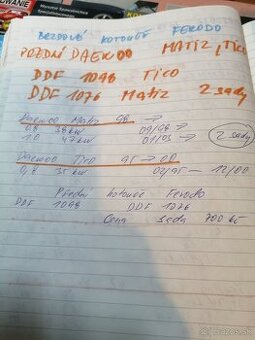 KOTOUČE FERODO
DAEWOO MATIZ, TICO
DDF 1098 TICO
DDF 1076 MATIZ 2 sady
Daewoo Matiz 98 →
0,8 38 kW 09/98 →
1.0 47 kW 01/03 →
2 sady
Daewoo Tico 95 → 00
0,8 35 kW 02/95 → 12/00
Přední kotouče Ferodo
DDF 1098 DDF 1076
Cena sada 700 Kč
bazos.sk